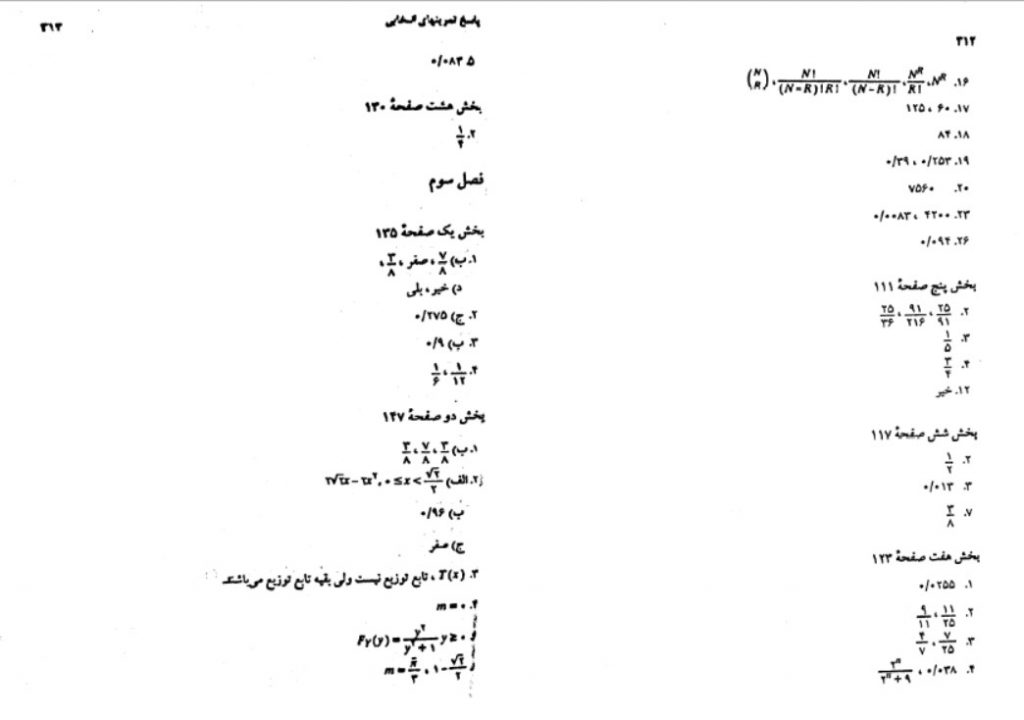 ۳۱۲
۱۶. N^R ، N^R/R! ، N!/(N-R)! ، N!/((N-R)!R!) ، (N R)
۱۷. ۶۰ ، ۱۲۵
۱۸. ۸۴
۱۹. ۰/۲۵۳ ، ۰/۳۹
۲۰. ۷۵۶۰
۲۳. ۴۲۰۰ ، ۰/۰۰۸۳
۲۶. ۰/۰۹۴
بخش پنج صفحهٔ ۱۱۱
۲. ۲۵/۹۱ ، ۹۱/۲۱۶ ، ۲۵/۳۶
۳. ۱/۵
۴. ۳/۴
۱۲. خیر
بخش شش صفحهٔ ۱۱۷
۲. ۱/۲
۳. ۰/۰۱۳
۷. ۳/۸
بخش هفت صفحهٔ ۱۲۳
۱. ۰/۰۲۵۵
۲. ۱۱/۲۵ ، ۹/۱۱
۳. ۷/۲۵ ، ۴/۷
۴. ۰/۰۳۸ ، ۲^n/(۲^n+۹)
پاسخ تمرینهای انتخابی ۳۱۳
۵ ۰/۰۸۳
بخش هشت صفحهٔ ۱۳۰
۲. ۱/۴
فصل سوم
بخش یک صفحهٔ ۱۳۵
۱. ب) ۷/۸ ، صفر ، ۳/۸ ،
د) خیر ، بلی
۲. ج) ۰/۲۷۵
۳. ب) ۰/۹
۴. ۱/۱۲ ، ۱/۶
بخش دو صفحهٔ ۱۴۷
۱. ب) ۳/۸ ، ۷/۸ ، ۳/۸
۲. الف) ۲√۲x - ۲x^۲, ۰ ≤ x < √۲/۲
ب) ۰/۹۶
ج) صفر
۳. T(x) ، تابع توزیع نیست ولی بقیه تابع توزیع می‌باشند
۴. m = ۰
F_Y(y) = y^۲/(y^۲+۱) y ≥ ۰
m = π/۳ ، ۱ - √۲/۲